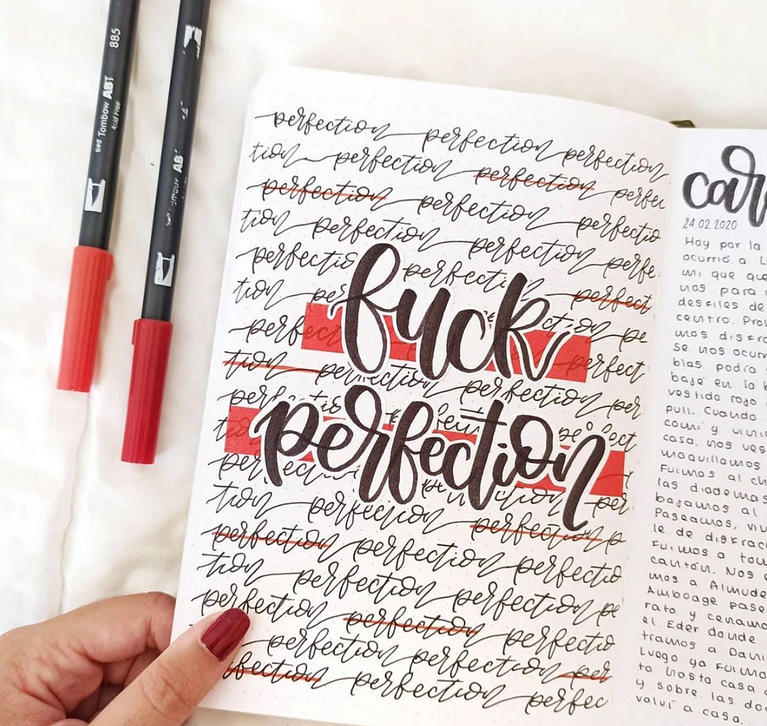 885
Tombow ABT
Acid Free
AB
perfection perfection perfection
tion perfection perfection perfec
perfection perfection perfection
tion perfection perfection perfe
perfection perfection perfect
tion pe
fuck
perfect ct pe
perfect
tion perfection perfection per
perfection
perfection perfection per
tion perfection perfection p
perfection perfection perfectio
tion perfection perfection pe
perfection perfection perfectio
perfection perfection per
fection perfection perfec
car
24.02.2020
Hoy por la
ocurrió a L
mi que qu
nos para
desfiles de
centro. Pro
mos disfra
se nos ocur
blas podía
baje en la
vestido rojo
pull. Cuando
comí y vini
casa. nos ves
maquillamos
Fuimos al ch
las diademas
bajamos al
Paseamos, viv
le de disfrac
Fuimos a tom
cantón. Nos
mos a Almude
Amboage pase
rato y cenamo
el. Eder donde
tramos a Dani
Luego ya fuimo
ta hasta casa
y sobre las do
volví a casa